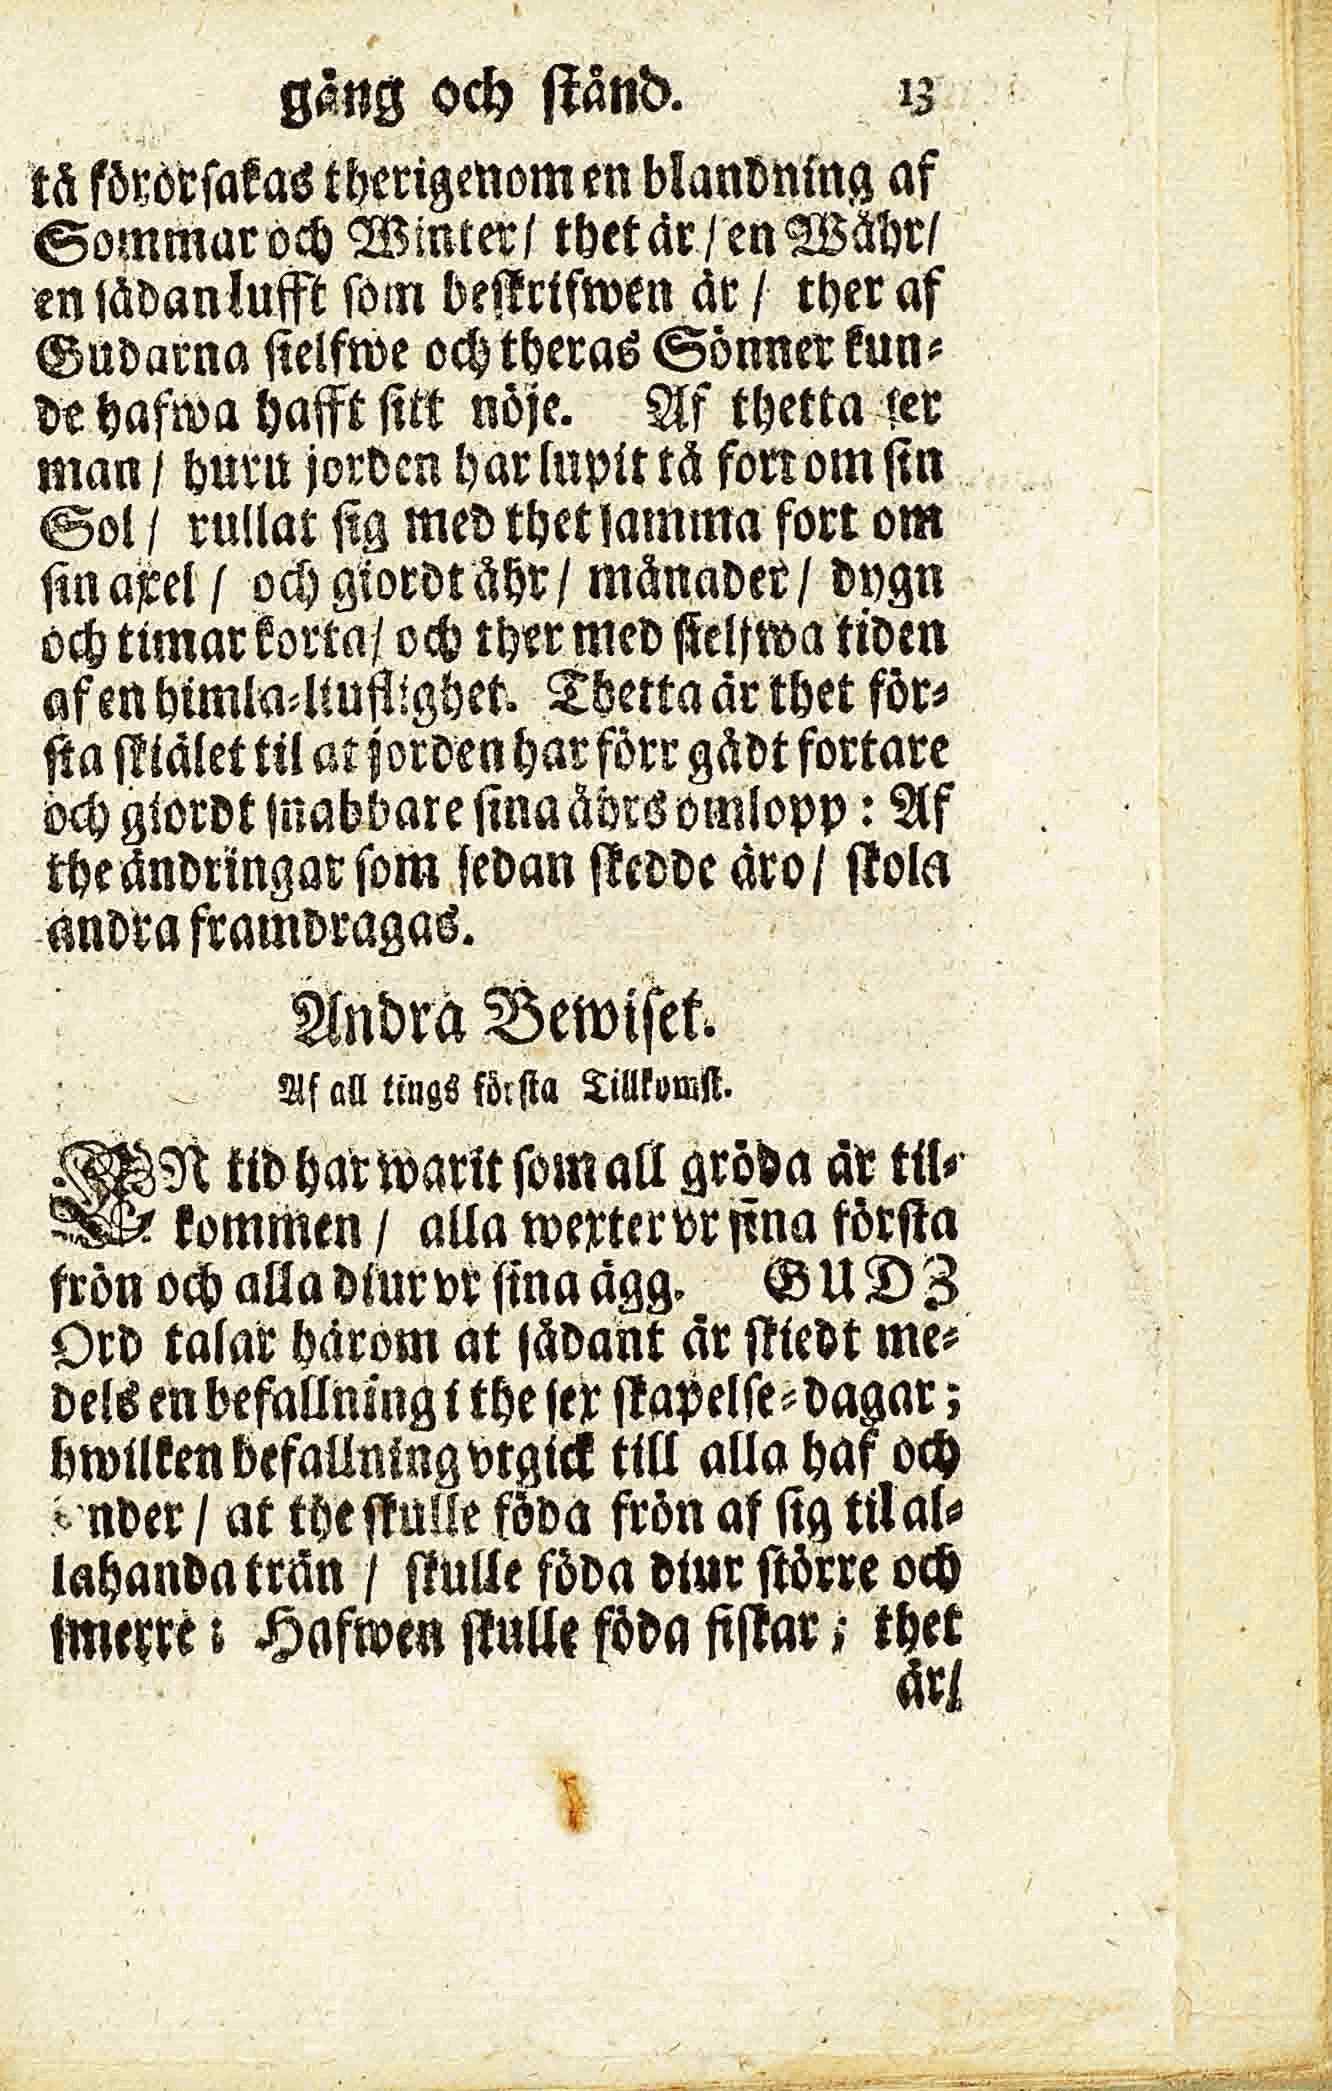 gång och stånd. 13
tå förorsakas therigenom en blandning af
Sommar och Winter/ thet är/ en Wåhr/
en sådan lufft som beskrifwen är/ ther af
Gudarna sielfwe och theras Sönner kun-
de hafwa hafft sitt nöje. Af thetta ser
man/ huru jorden har lupit tå fort om sin
Sol/ rullat sig med thet samma fort om
sin axel/ och giordt åhr/ månader/ dygn
och timar korta/ och ther med sielfwa tiden
af en himla-liuflighet. Thetta är thet för-
sta skiälet til at jorden har förr gådt fortare
och giordt snabbare sina åhrs omlopp: Af
the ändringar som sedan skedde äro/ skola
andra framdragas.
Andra Bewiset.
Af all tings första Tillkomst.
EN tid har warit som all gröda är til-
kommen/ alla wexter vr sina första
frön och alla diur vr sina ägg. GUDZ
Ord talar härom at sådant är skiedt me-
dels en befallning i the sex skapelse-dagar;
hwilken befallning vtgick till alla haf och
at the skulle föda frön af sig til al-
lahanda trän/ skulle föda diur större och
smerre: Hafwen skulle föda fiskar; thet
är/